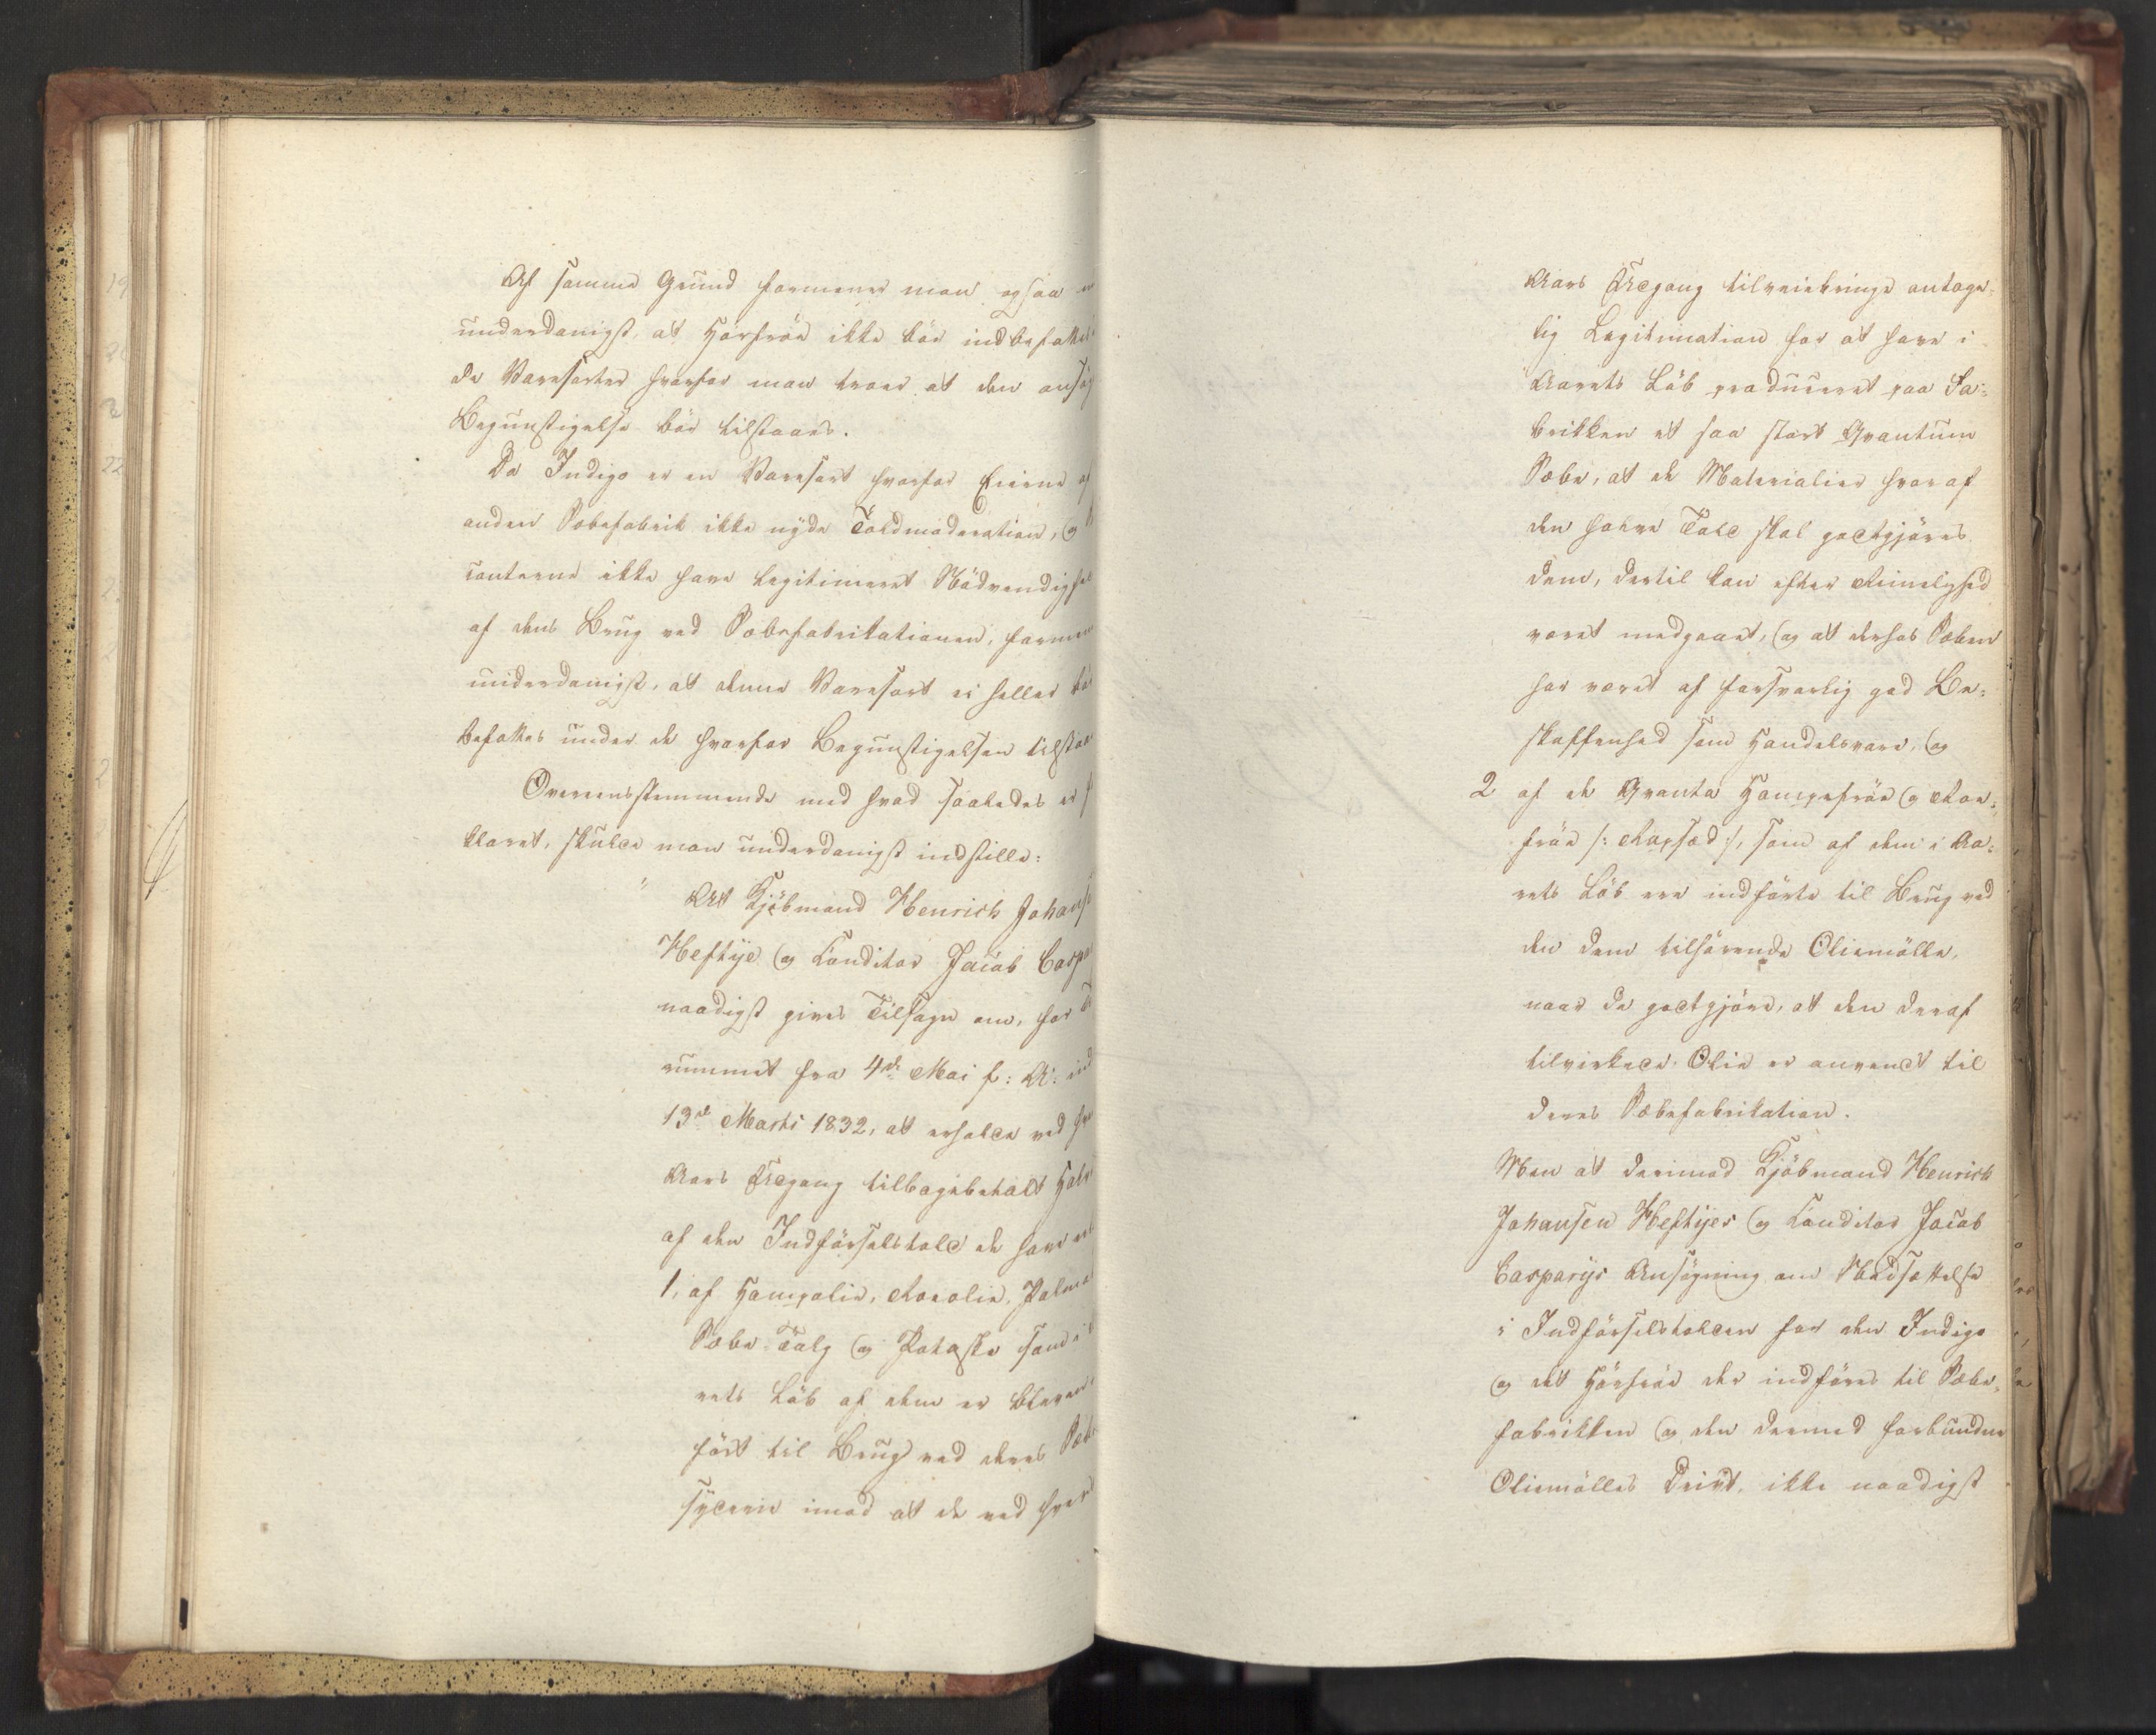 Af samme Grund formener man ogsaa
underdanigst, at Hørfrøe ikke bør indbefattes
de Varesorter hvorfor man troer at den ansøg
Begunstigelse bør tilstaaes.
Da Indigo er en Varesort hvorfor Eierne af
anden Sæbefabrik ikke nyde Toldmoderation, og
canterne ikke have legitimeret Nødvendighe
af dens Brug ved Sæbefabrikationen, forme
underdanigst, at denne Varesort ei heller bø
befattes under de hvorfor Begunstigelsen tilstaa
Overeensstemmende med hvad saaledes er
klaret, skulde man underdanigst indstille:
" At Kjøbmand Henrich Johans
Heftÿe og Conditor Jacob Caspa
naadigst gives Tilsagn om, for
rummet fra 4de Mai f: A: ind
13de Marti 1832, at erholde ved hv
Aars Udgang tilbagebetalt Halv
af den Indførselstold de have
1, af Hampolie, Roeolie, Palme
Sæbe Talg og Potaske som i
rets Løb af dem er bleven
ført til Brug ved deres Sæb
syderie imod at de ved hver
Aars Udgang tilveiebringe antage¬
lig Legitimation for at have i
Aarets Løb produceret paa Fa¬
brikken et saa stort Qvantum
Sæbe, at de Materialier hvoraf
den halve Told skal godtgjøres
dem, dertil kan efter Rimelighed
været medgaaet, og at derhos Sæben
har været af forsvarlig god Be¬
skaffenhed som Handelsvare, og
2 af de Qvanta Hampefrøe og Roe¬
frøe /: Rapsæd :/, som af dem i Aa¬
rets Løb ere indførte til Brug ved
den dem tilhørende Oliemølle,
naar de godtgjøre, at den deraf
tilvirkede Olie er anvendt til
deres Sæbefabrikation.
Men at derimod Kjøbmand Henrich
Johansen Heftÿes og Conditor Jacob
Casparÿs Ansøgning om Nedsættelse
i Indførselstolden for den Indigo
og det Hørfrøe der indføres til Sæbe¬
fabrikken og den dermed forbundne
Oliemølles Drivt, ikke naadigst